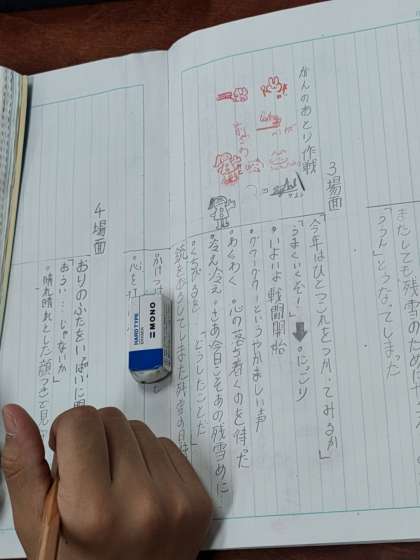 またしても残雪のために
「ううん」とうなってしまった
3場面
がんのおとり作戦
「今年はひとつこれをつかってみるか」
「うまくいくぞ！」
にっこり
・いよいよ戦闘開始
・グワーグワーというやかましい声
・わくわく 心の落ち着くのを待った
・冷え冷え ・さあ今日こそあの残雪めに
・くちびると 「どうしたことだ」
銃をおろしてしまった 残雪の
4場面
おりのふたをいっぱいに
「おうい…じゃないか」
・晴れ晴れとした顔つきで見
MONO
HARD TYPE